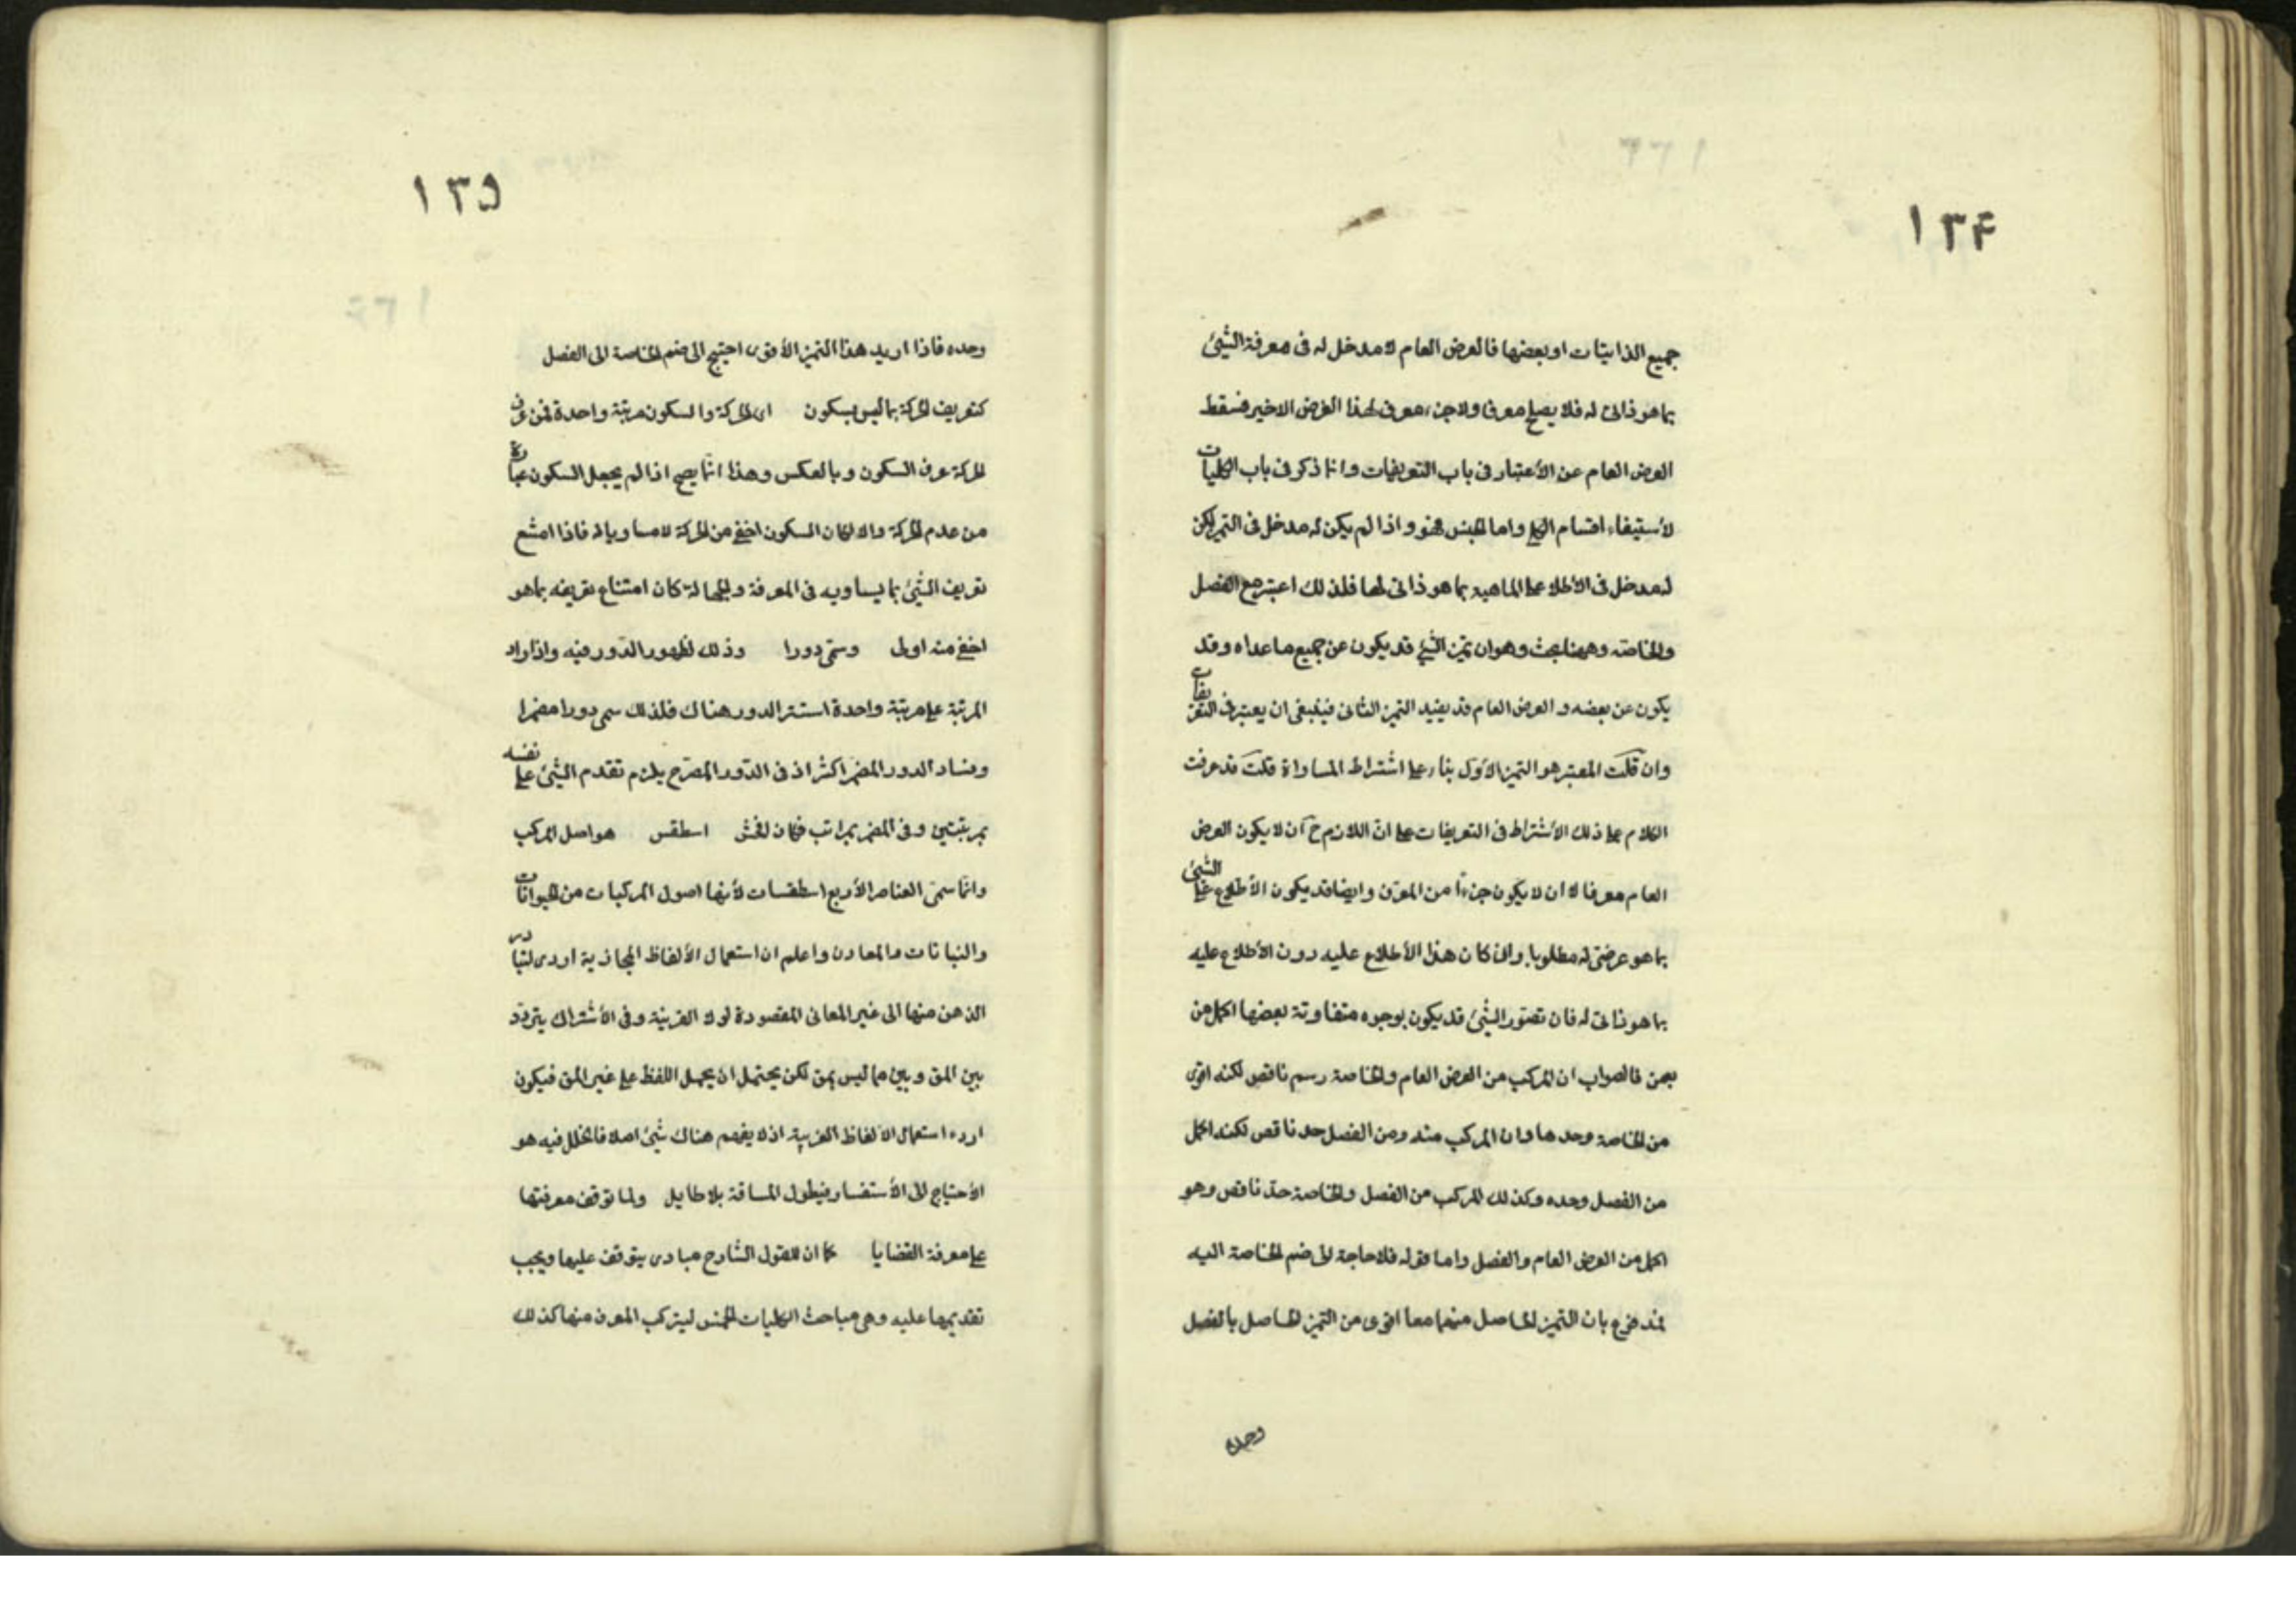 ١٣۴
جميع الذاتيات او بعضها فالعرض العام لا مدخل له فى معرفة الشيئ
بما هو ذاتى له فلا يصلح معرفا ولا جزء معرف لهذا الغرض الاخير فسقط
العرض العام عن الأعتبار فى باب التعريفات وانما ذكر فى باب الكليات
لأستيفاء اقسام الكلى واما الجنس فهو واذا لم يكن له مدخل فى التميز لكن
له مدخل فى الأطلاع على الماهيه بما هو ذاتى لها فلذلك اعتبر مع الفصل
والخاصه وههنا بحث وهو ان تميز الشيئ قد يكون عن جميع ما عداه وقد
يكون عن بعضه والعرض العام قد يفيد التميز الثانى فينبغى ان يعتبر فى التعريفات
وان قلت المعتبر هو التميز الأول بناء على اشتراط المساواة قلت قد عرفت
الكلام على ذلك الأشتراط فى التعريفات على انّ اللازم ح ان لا يكون العرض
العام معرفا لا ان لا يكون جزءاً من المعرّف وايضا قد يكون الأطلاع على الشيئ
بما هو عرضى له مطلوبا وان كان هذا الأطلاع عليه دون الأطلاع عليه
بما هو ذاتى له فان تصوّر الشيئ قد يكون بوجوه متفاوتة بعضها اكمل من
بعض فالصواب ان المركب من العرض العام والخاصة رسم ناقص لكنه اقوى
من الخاصة وحدها وان المركب منه ومن الفصل حد ناقص لكنه اكمل
من الفصل وحده وكذلك المركب من الفصل والخاصة حدّ ناقص وهو
اكمل من العرض العام والفصل واما قوله فلا حاجة الى ضم الخاصة اليه
فمدفوع بان التميز الحاصل منهما معا اقوى من التميز الحاصل بالفصل
وحده
١٣۵
وحده فاذا اريد هذا التميز الأقوى احتيج الى ضم الخاصة الى الفصل
كتعريف الحركة بما ليس بسكون اى الحركة والسكون مرتبة واحدة فمن عرف
الحركة عرف السكون وبالعكس وهذا انّما يصح اذا لم يجعل السكون عبارة
من عدم الحركة والا لكان السكون اخفى من الحركة لا مساويا له فاذا امتنع
تعريف الشيئ بما يساويه فى المعرفة والجهالة كان امتناع تعريفه بما هو
اخفى منه اولى وسمّى دورا وذلك لظهور الدّور فيه واذا زاد
المرتبة على مرتبة واحدة استتر الدور هناك فلذلك سمى دورا مضمرا
وفساد الدور المضمر اكثر اذ فى الدّور المصرّح يلزم تقدم الشيئ على نفسه
بمرتبتين وفى المضمر بمراتب فكان افحش اسطقس هو اصل المركب
وانّما سمّى العناصر الأربع اسطقسات لأنها اصول المركبات من الحيوانات
والنباتات والمعادن واعلم ان استعمال الألفاظ المجازية اردى لتبادر
الذهن منها الى غير المعانى المقصودة لولا القرينة وفى الأشتراك يتردّد
بين المق وبين ما ليس بمق لكن يحتمل ان يحمل اللفظ على غير المق فيكون
ارده استعمال الألفاظ الغريبة اذ لا يفهم هناك شيئ اصلا فالخلل فيه هو
الأحتياج الى الأستفسار فيطول المسافة بلا طايل ولما توقف معرفتها
على معرفة القضايا كما ان للقول الشارح مبادى يتوقف عليها ويجب
تقديمها عليه وهى مباحث الكليات الخمس ليتركب المعرف منها كذلك